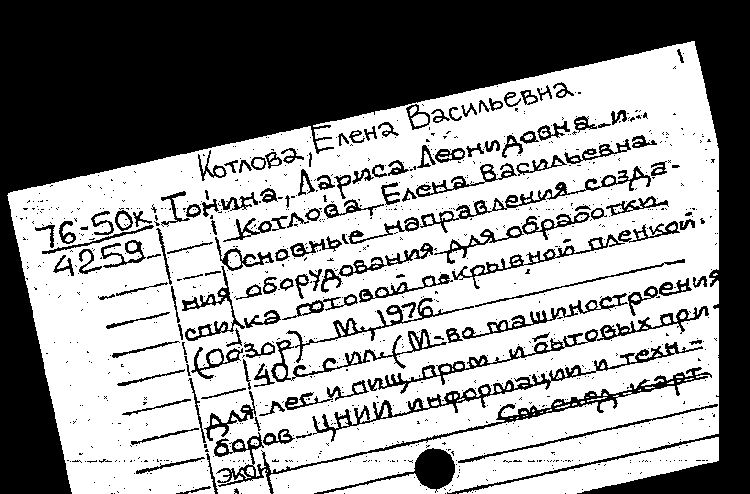 1
Котлова, Елена Васильевна.
76-50к
4259
Тонина, Лариса Леонидовна и...
Котлова, Елена Васильевна.
Основные направления созда-
ния оборудования для обработки
спилка готовой покрывной пленкой.
(Обзор). М., 1976.
40 с. с ил. (М-во машиностроения
для лег. и пищ. пром. и бытовых при-
боров ЦНИИ информации и техн.-
экон...
См. след. карт.